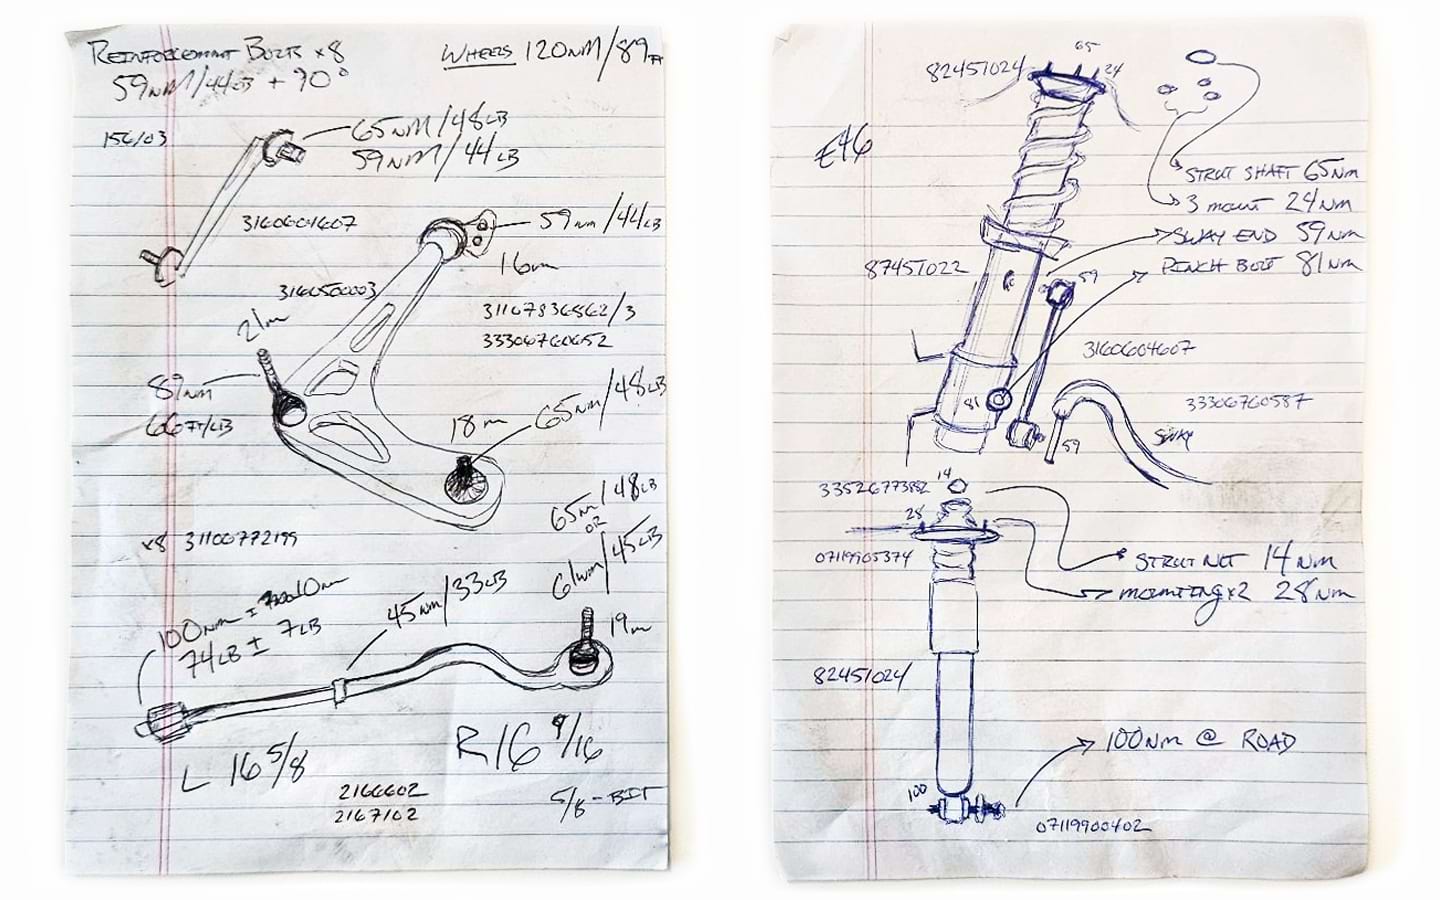 REINFORCEMENT BOLTS x8
59NM/44LB + 90°
WHEELS 120NM/89FT
156/03
65NM/48LB
59NM/44LB
31606004607
59NM/44LB
16m
3160500003
31167836862/3
33306760652
21m
89NM
66FT/LB
18m
65NM/48LB
65NM/48LB
OR
61NM/45LB
x8 31100772199
100NM ± 10NM
74LB ± 7LB
45NM/33LB
19m
L 16 5/8
R 16 9/16
2166602
2167102
5/8-BIT
E46
82451024
65
24
STRUT SHAFT 65NM
3 MOUNT 24NM
SWAY END 59NM
PINCH BOLT 81NM
87451022
59
31606604607
81
33306760587
59
SWAY
33526773882
14
28
07119905374
STRUT NUT 14NM
MOUNTING x2 28NM
82451024
100NM @ ROAD
100
07119900402